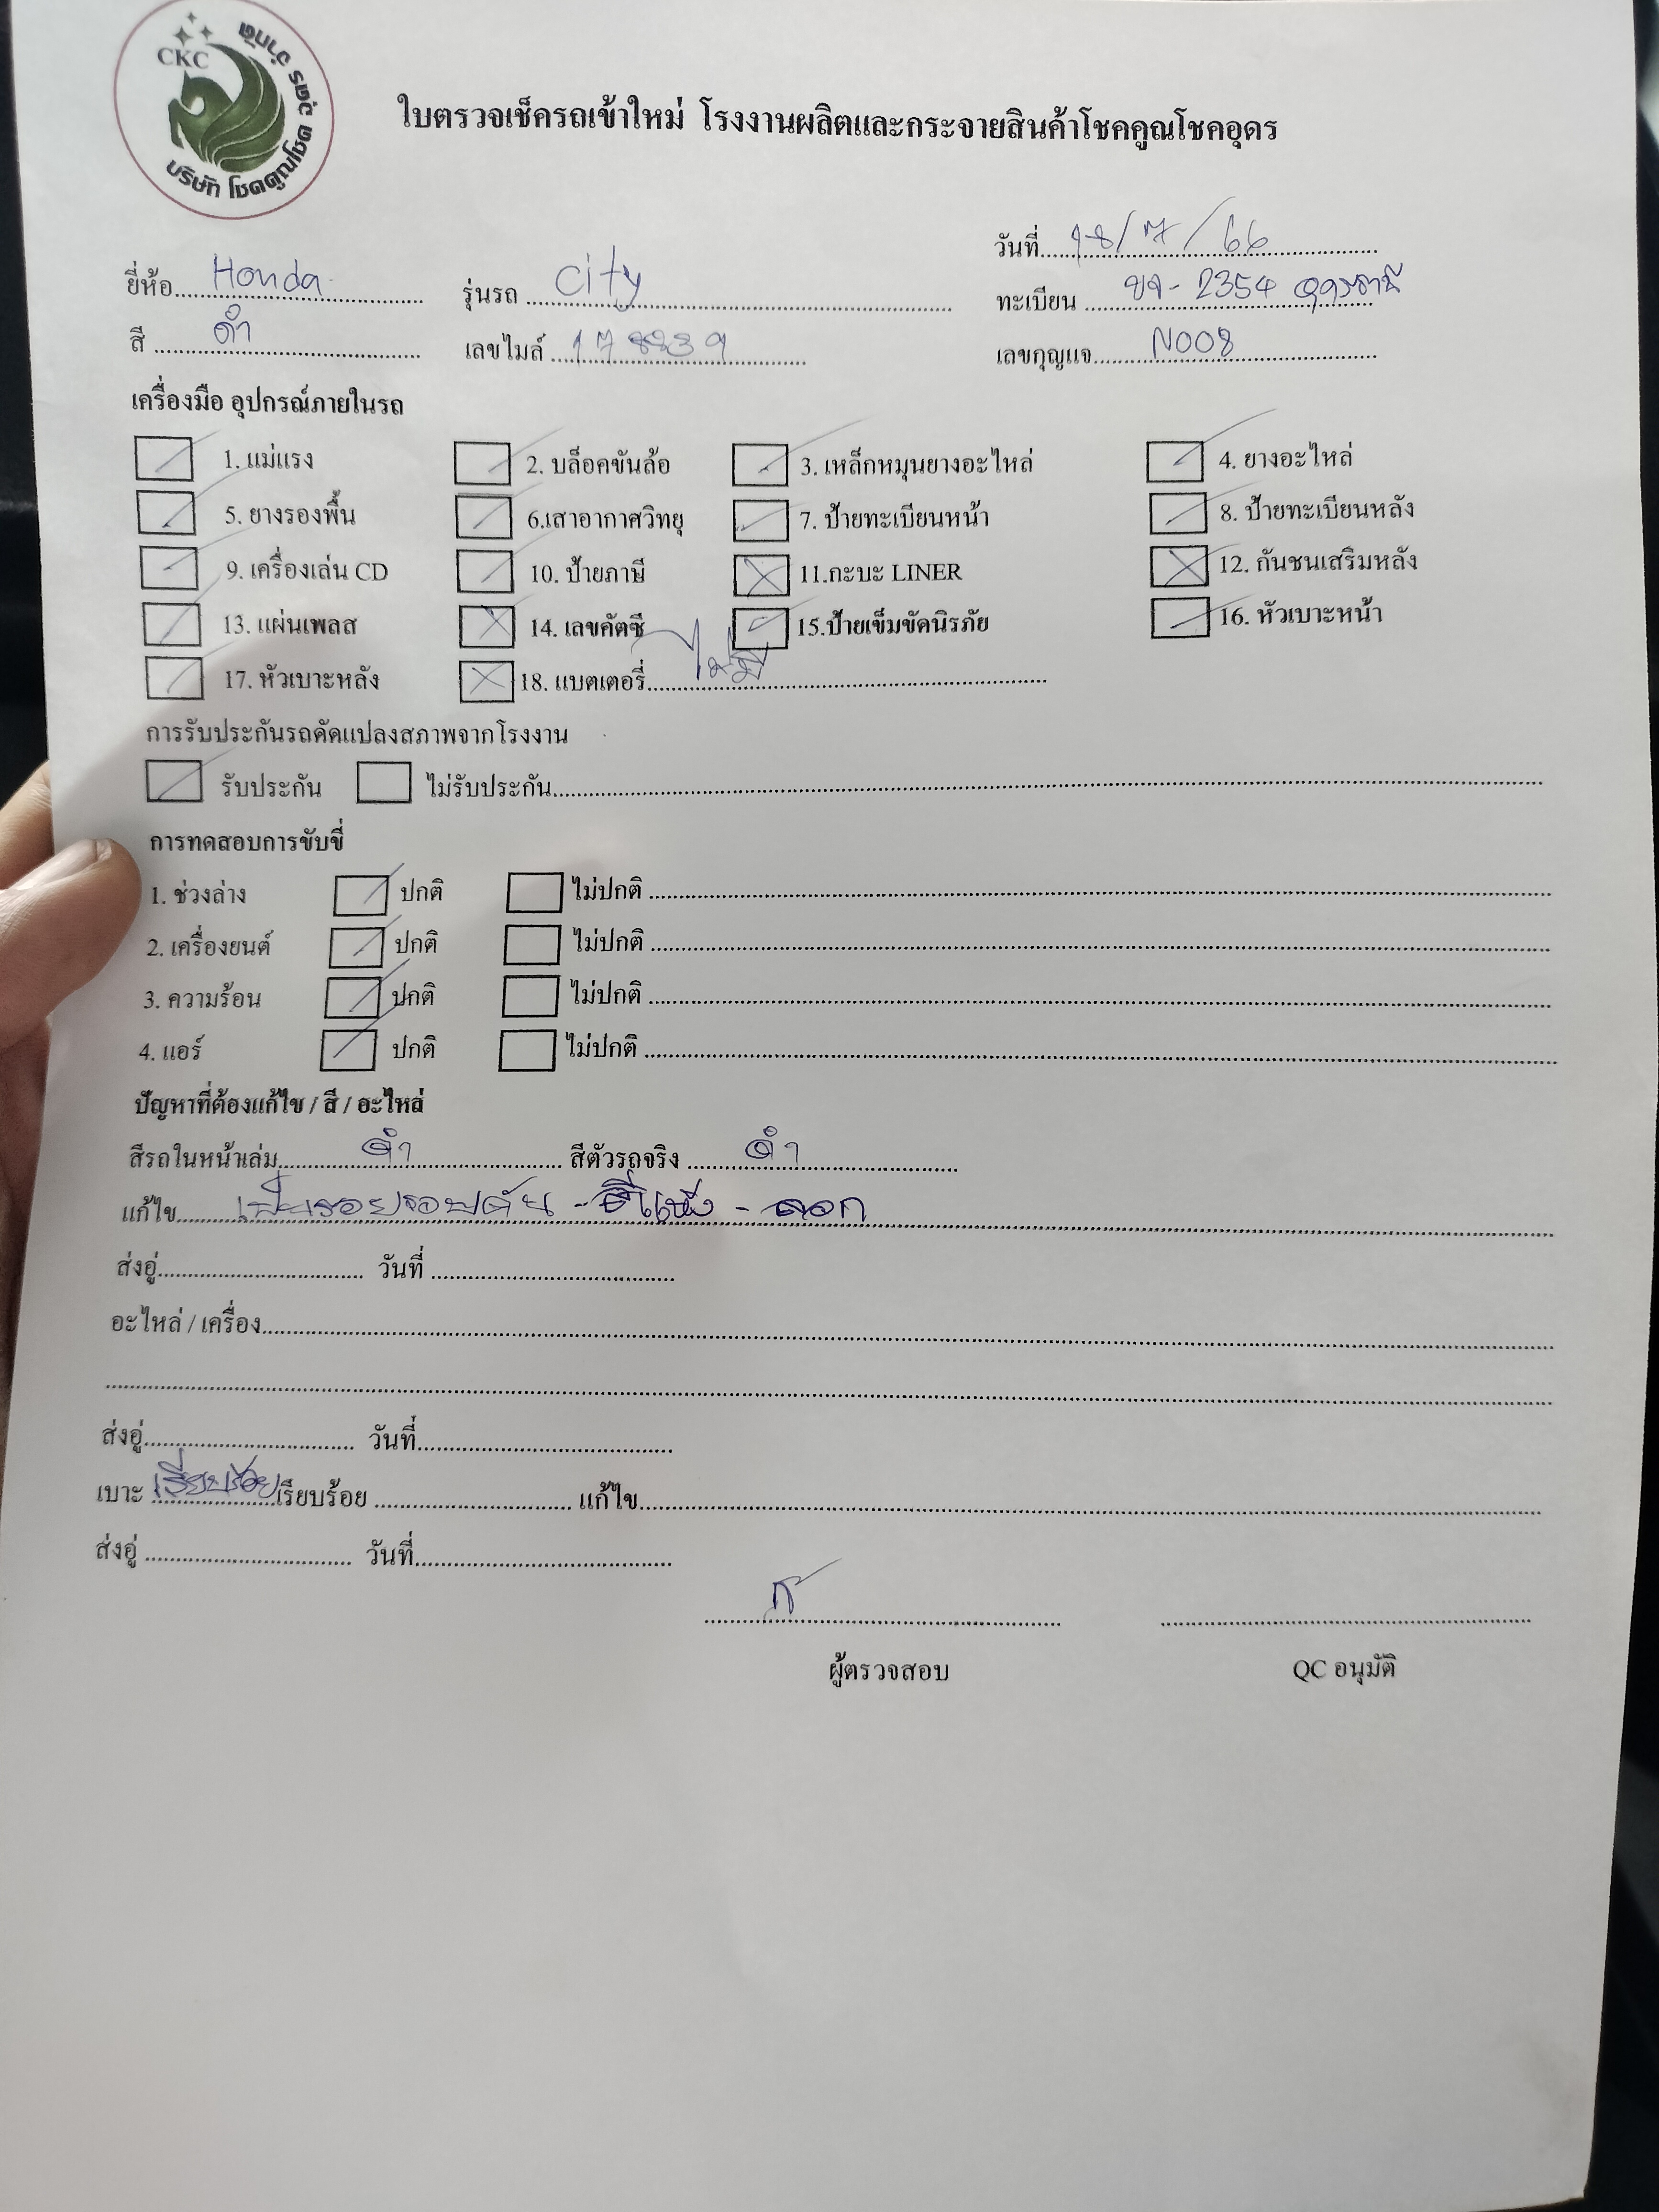 CKC
บริษัท โชคคูณโชค ... จำกัด
ใบตรวจเช็ครถเข้าใหม่ โรงงานผลิตและกระจายสินค้าโชคคูณโชคอุดร
วันที่ 18/7/66
ยี่ห้อ Honda รุ่นรถ City ทะเบียน 2354 อุดรธานี
สี ดำ เลขไมล์ เลขกุญแจ N008
เครื่องมือ อุปกรณ์ภายในรถ
1. แม่แรง 2. บล็อคขันล้อ 3. เหล็กหมุนยางอะไหล่ 4. ยางอะไหล่
5. ยางรองพื้น 6.เสาอากาศวิทยุ 7. ป้ายทะเบียนหน้า 8. ป้ายทะเบียนหลัง
9. เครื่องเล่น CD 10. ป้ายภาษี 11.กะบะ LINER 12. กันชนเสริมหลัง
13. แผ่นเพลส 14. เลขคัตซี 15.ป้ายเข็มขัดนิรภัย 16. หัวเบาะหน้า
17. หัวเบาะหลัง 18. แบตเตอรี่ ไม่มี
การรับประกันรถดัดแปลงสภาพจากโรงงาน
รับประกัน ไม่รับประกัน
การทดสอบการขับขี่
1. ช่วงล่าง ปกติ ไม่ปกติ
2. เครื่องยนต์ ปกติ ไม่ปกติ
3. ความร้อน ปกติ ไม่ปกติ
4. แอร์ ปกติ ไม่ปกติ
ปัญหาที่ต้องแก้ไข / สี / อะไหล่
สีรถในหน้าเล่ม ดำ สีตัวรถจริง ดำ
แก้ไข เป็นรอยรอบคัน - - ลอก
ส่งอู่ วันที่
อะไหล่ / เครื่อง
ส่งอู่ วันที่
เบาะ เรียบร้อย เรียบร้อย แก้ไข
ส่งอู่ วันที่
ผู้ตรวจสอบ QC อนุมัติ